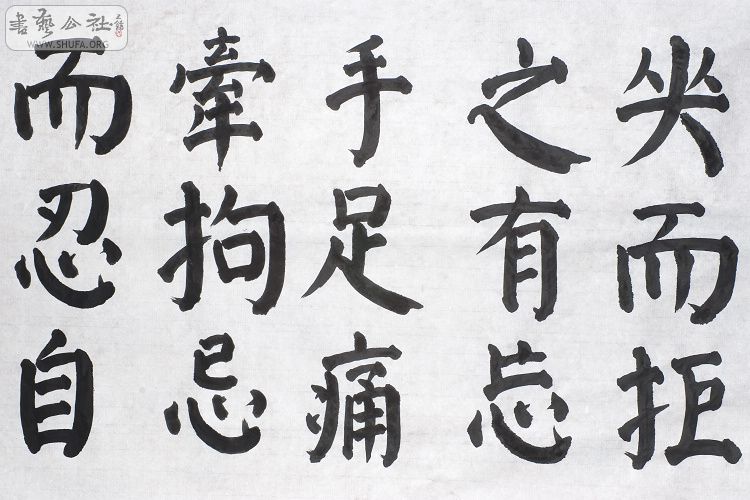 書藝公社
WWW.SHUFA.ORG
而拒
之有忘
手足痛
牽拘忌
而忍自